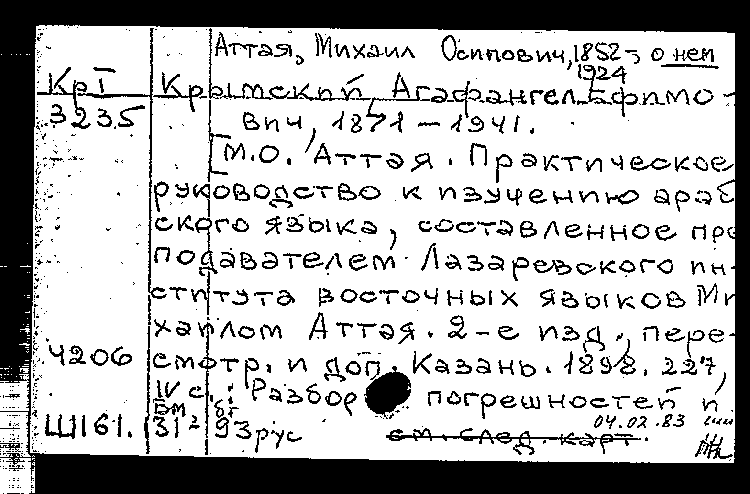 Аттая, Михаил Осипович, 1852-1924 о нем
КрI Крымский, Агафангел Ефимо-
3235 вич, 1871-1941.
[М.О. Аттая. Практическое
руководство к изучению араб
ского языка, составленное пре
подавателем Лазаревского ин-
ститута восточных языков Ми
хаилом Аттая. 2-е изд., пере-
4206 смотр. и доп. Казань. 1898. 227,
IV с.: Разбор погрешностей и
Ш161. 93рус см. след. карт. 04.02.83